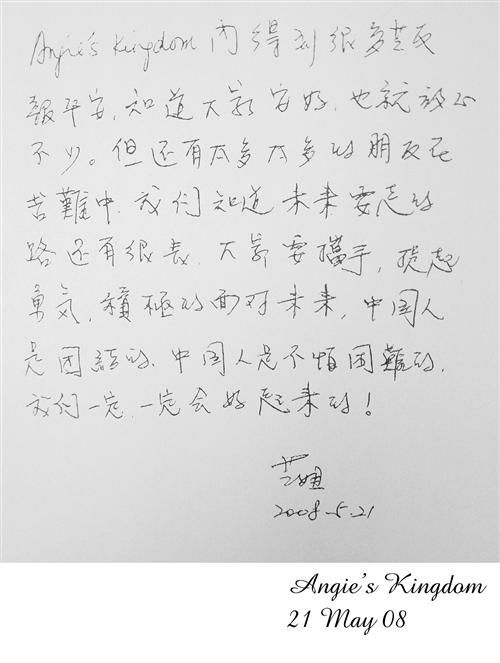 Angie's Kingdom 內得到很多芝友
報平安, 知道大家安好, 也就放心
不少。但还有太多太多的朋友在
苦難中, 我们知道未来要走的
路还有很長, 大家要攜手, 提起
勇気, 積極的面对未来, 中国人
是团結的, 中国人是不怕困難的,
我们一定, 一定会好起来的!
2008.5.21
Angie's Kingdom
21 May 08